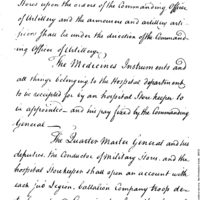 Stores upon the orders of the Commanding Officer
of Artillery and the armourers and artillery arti-
ficers shall be under the direction of the Command-
ing Officer of Artillery.
The Medicines Instruments and
all things belonging to the Hospital Department
to be receipted for by an hospital Storekeeper to
be appointed and his pay fixed by the Commanding
General
The Quarter Master General and his
deputies the Conductor of Military Stores and the
hospital Storekeeper shall open an account with
each Legion, battalion Company troop de-